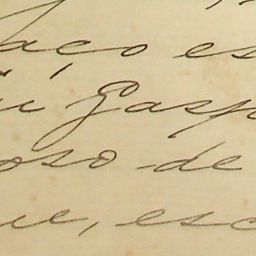 aço es
Gasp
oso de
ue, esc